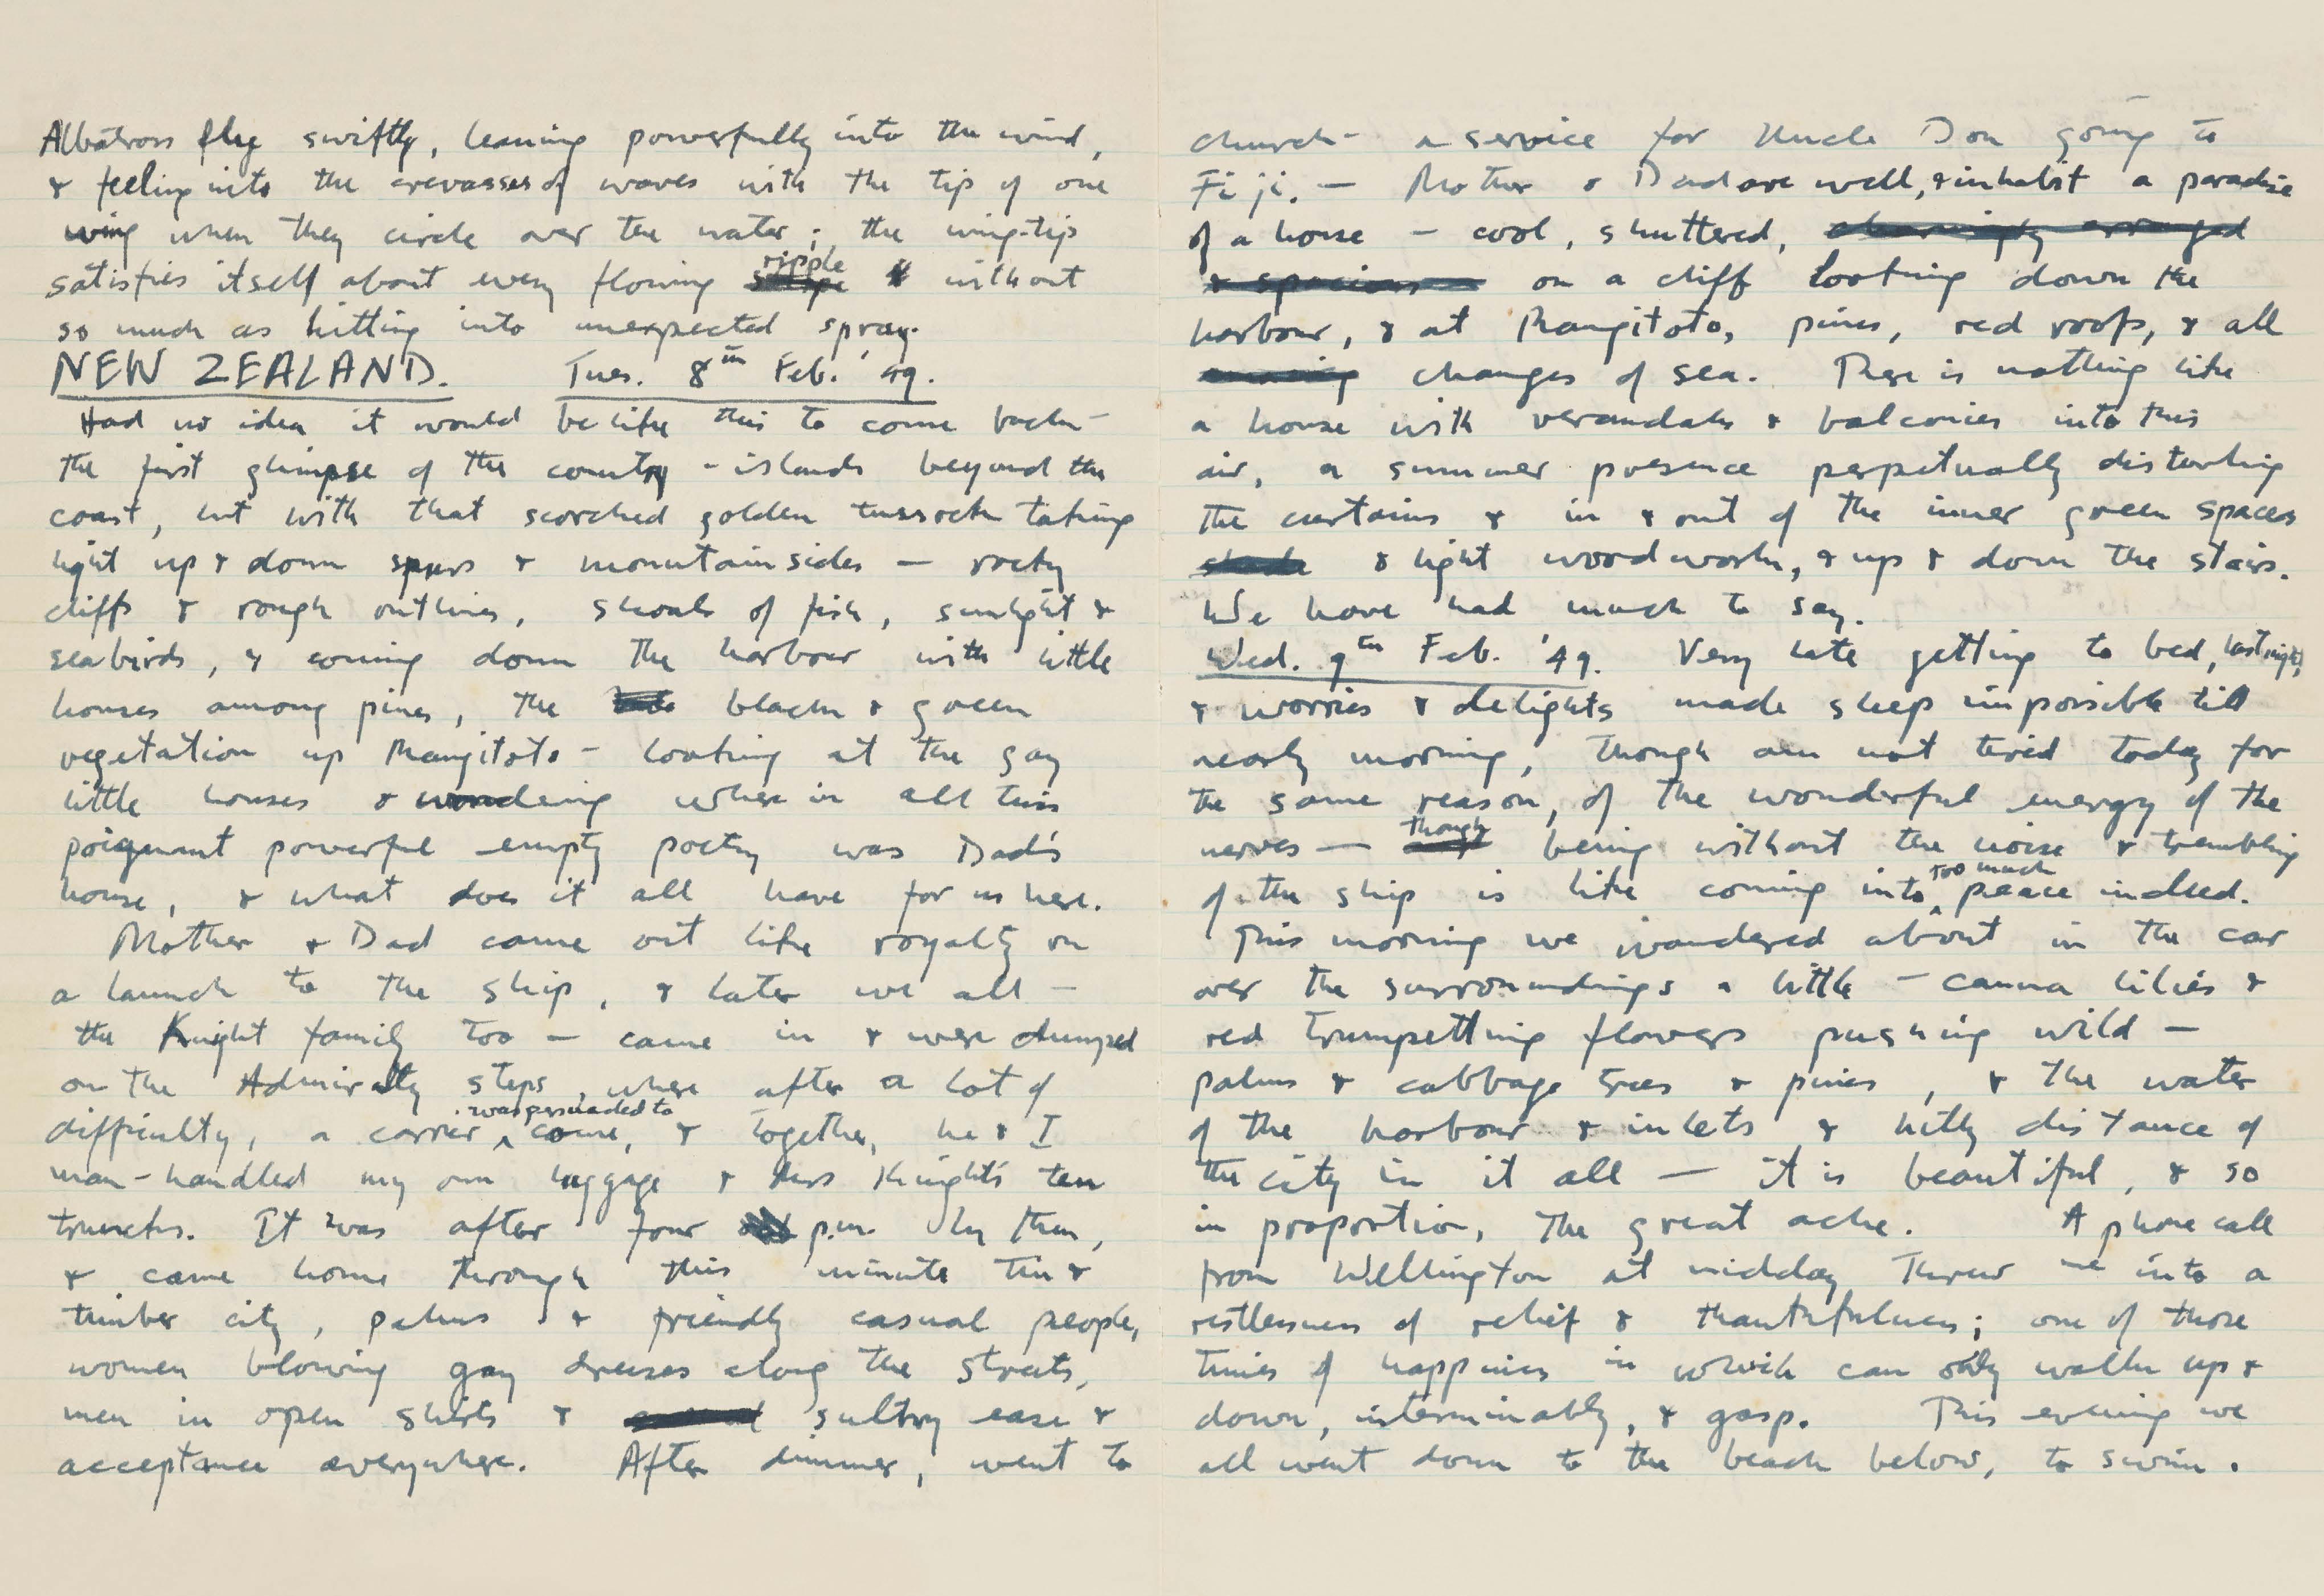 Albatross fly swiftly, leaning powerfully into the wind,
& feeling into the crevasses of waves with the tip of one
wing when they circle over the water; the wing-tip
satisfies itself about every flowing ripple without
so much as hitting into unexpected spray.
NEW ZEALAND. Tues. 8th Feb. '49.
Had no idea it would be like this to come back –
the first glimpse of the country – islands beyond the
coast, but with that scorched golden tussock taking
light up & down spurs & mountain sides — rocky
cliffs & rough outlines, shoals of fish, sunlight &
seabirds, & coming down the harbour with little
houses among pines, the black & green
vegetation up Rangitoto – looking at the gay
little houses & wondering where in all this
poignant powerful empty poetry was Dad's
house, & what does it all have for us here.
Mother & Dad came out like royalty on
a launch to the ship, & later we all –
the Knight family too – came in & were dumped
on the Admiralty steps, where after a lot of
difficulty, a carrier was persuaded to come, & together, he & I
man-handled my own luggage & Mrs Knight's ten
trunks. It was after four p.m. by then,
& came home through this minute tin &
timber city, palms & friendly casual people,
women blowing gay dresses along the streets,
men in open shirts & sultry ease &
acceptance everywhere. After dinner, went to
church – a service for Uncle Don going to
Fiji. – Mother & Dad are well, & inhabit a paradise
of a house – cool, shuttered, charmingly arranged
& spacious on a cliff looking down the
harbour, & at Rangitoto, pines, red roofs, & all
changes of sea. There is nothing like
a house with verandahs & balconies into this
air, a summer presence perpetually disturbing
the curtains & in & out of the inner green spaces
& light woodwork, & up & down the stairs.
We have had much to say.
Wed. 9th Feb. '49. Very late getting to bed, last night,
& worries & delights made sleep impossible till
nearly morning, though am not tired today for
the same reason, of the wonderful energy of the
nerves — though being without the noise & trembling
of the ship is like coming into too much peace indeed.
This morning we wandered about in the car
over the surroundings a little – canna lilies &
red trumpetting flowers pushing wild –
palms & cabbage trees & pines, & the water
of the harbour & inlets & hilly distance of
the city in it all — it is beautiful, & so
in proportion, the great ache. A phone call
from Wellington at midday threw me into a
restlessness of relief & thankfulness; one of those
times of happiness in which can only walk up &
down, interminably, & gasp. This evening we
all went down to the beach below, to swim.